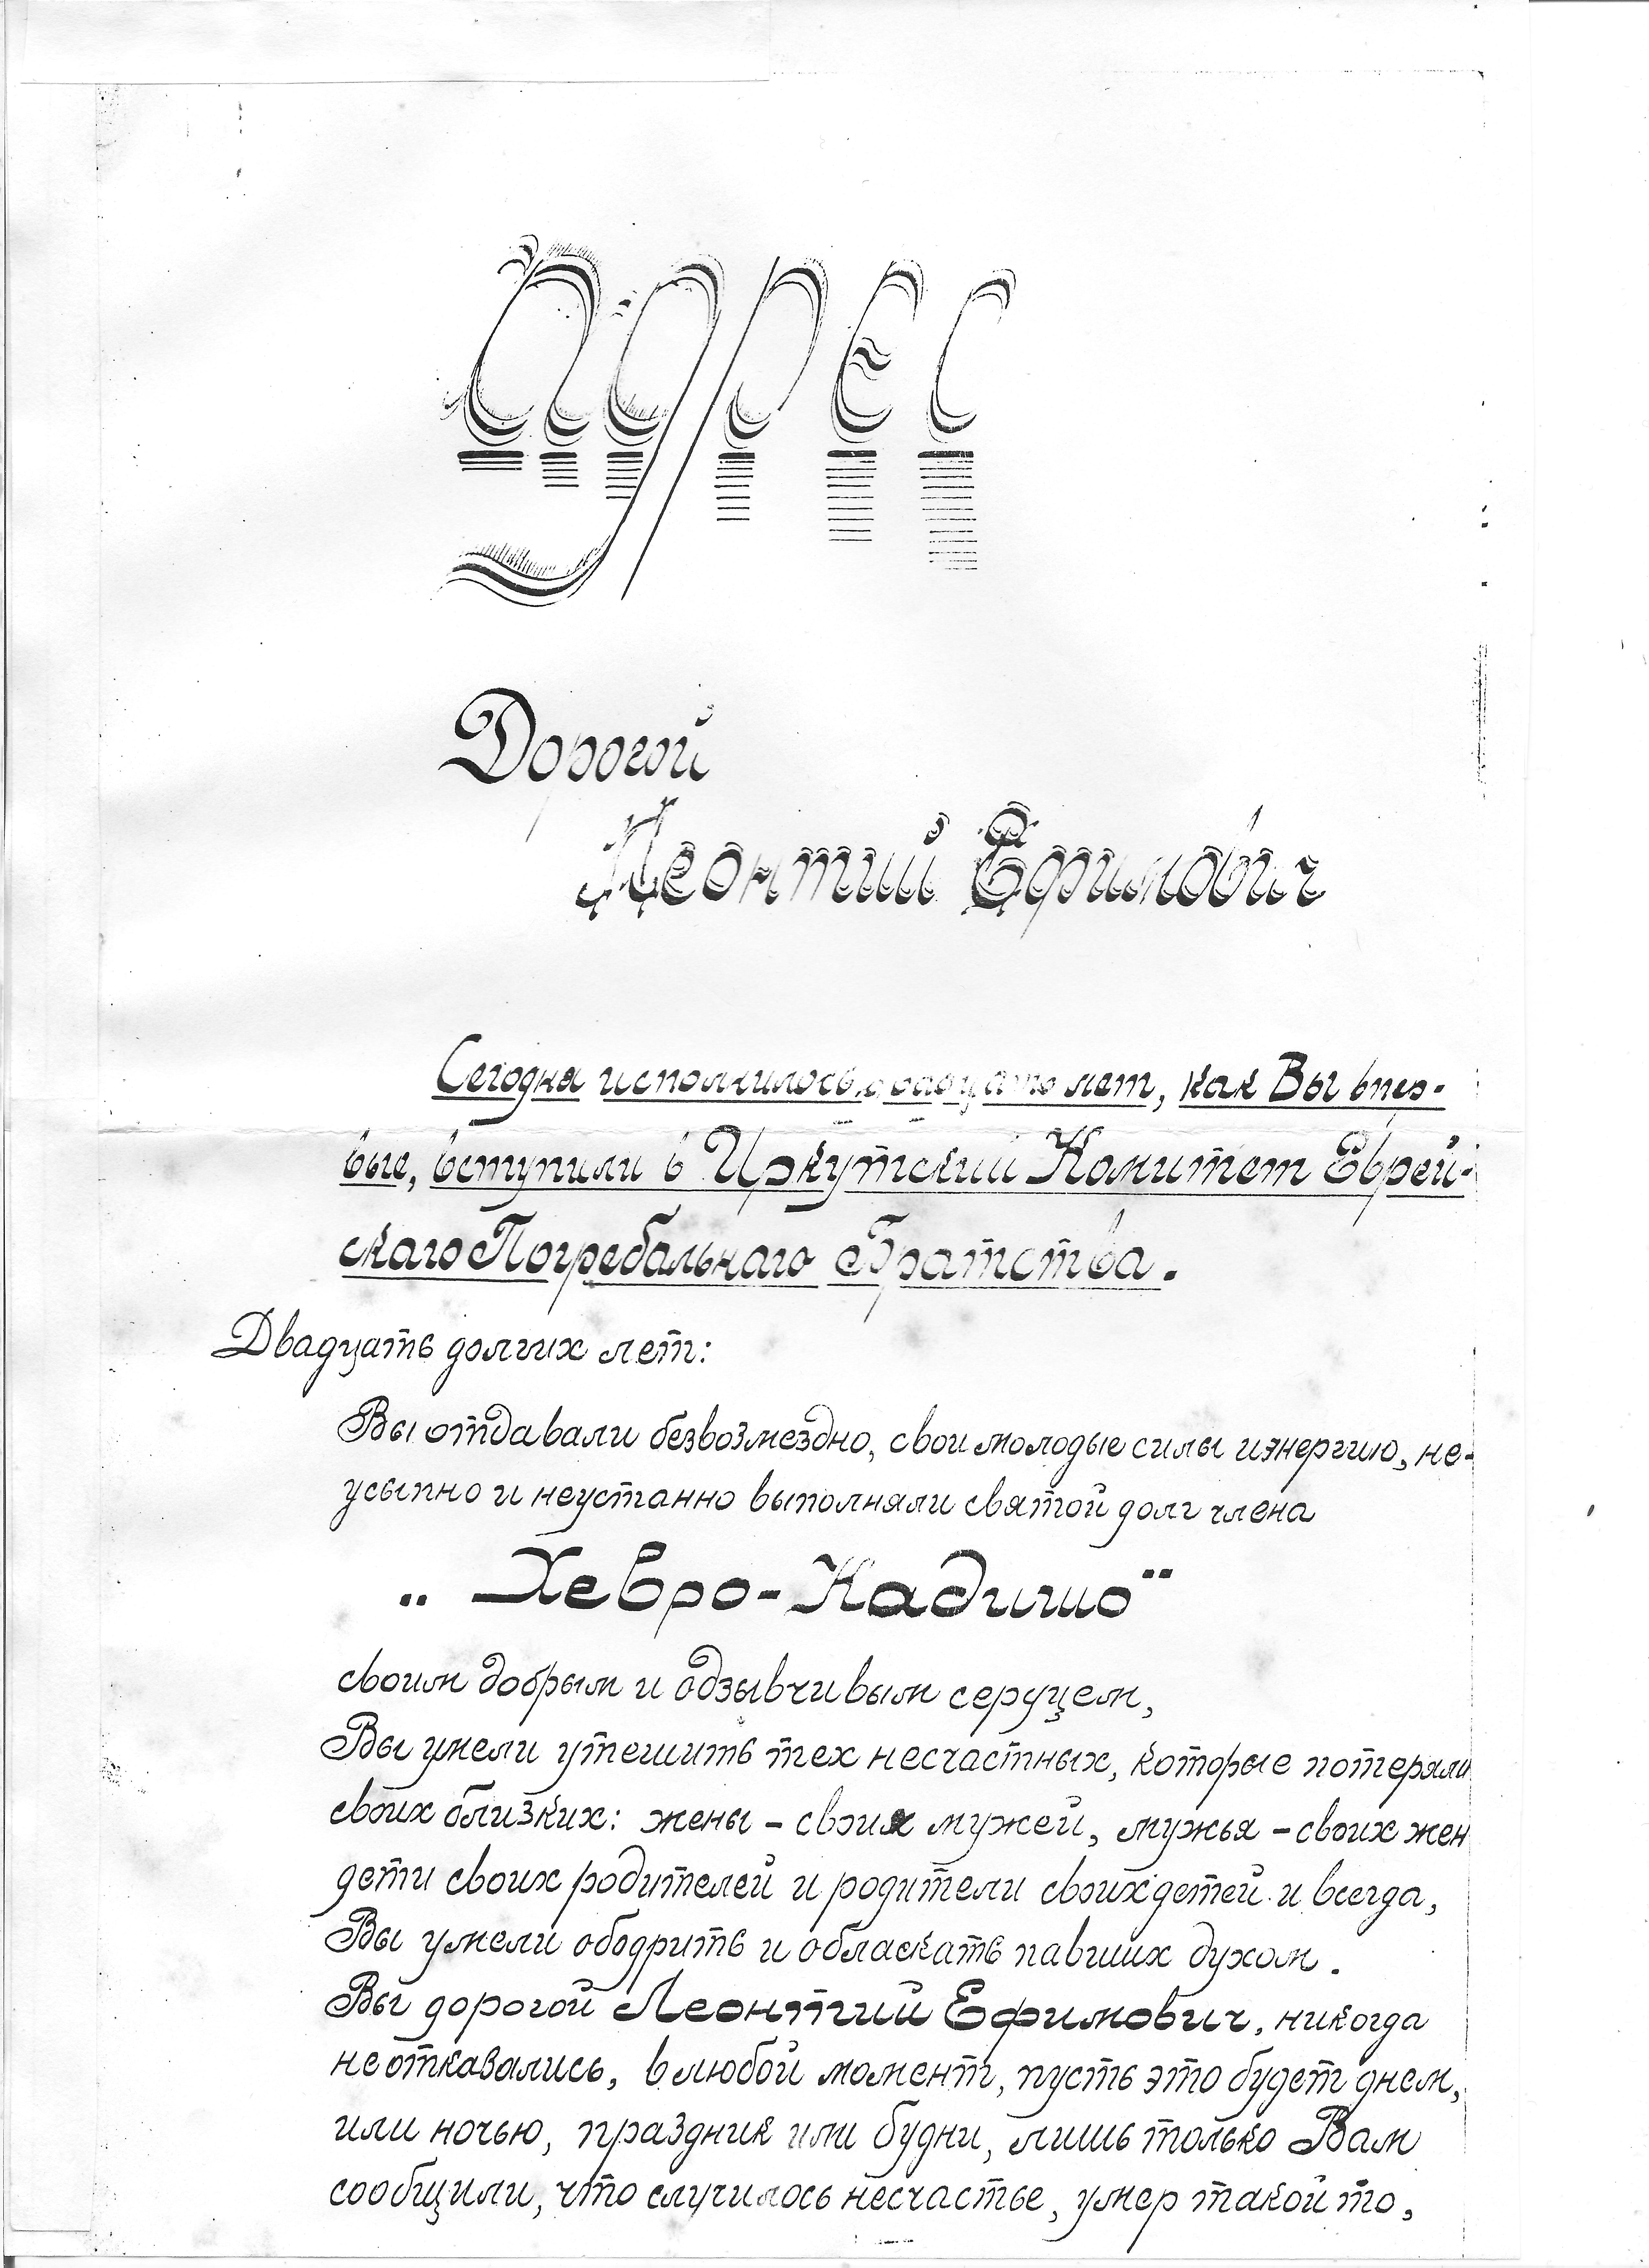 Адрес
Дорогой
Леонтий Ефимович
Сегодня исполнилось двадцать лет, как Вы впер-
вые, вступили в Иркутский Комитет Еврей-
скаго Погребальнаго Братства.
Двадцать долгих лет:
Вы отдавали безвозмездно, свои молодые силы и энергию, не-
усыпно и неустанно выполняли святой долг члена
„Хевро-Кадишо"
своим добрым и одзывчивым сердцем,
Вы умели утешить тех несчастных, которые потеряли
своих близких: жены - своих мужей, мужья - своих жен
дети своих родителей и родители своих детей и всегда,
Вы умели ободрить и обласкать павших духом.
Вы дорогой Леонтий Ефимович, никогда
не отказались, в любой момент, пусть это будет днем,
или ночью, праздник или будни, лишь только Вам
сообщили, что случилось несчастье, умер такой то,